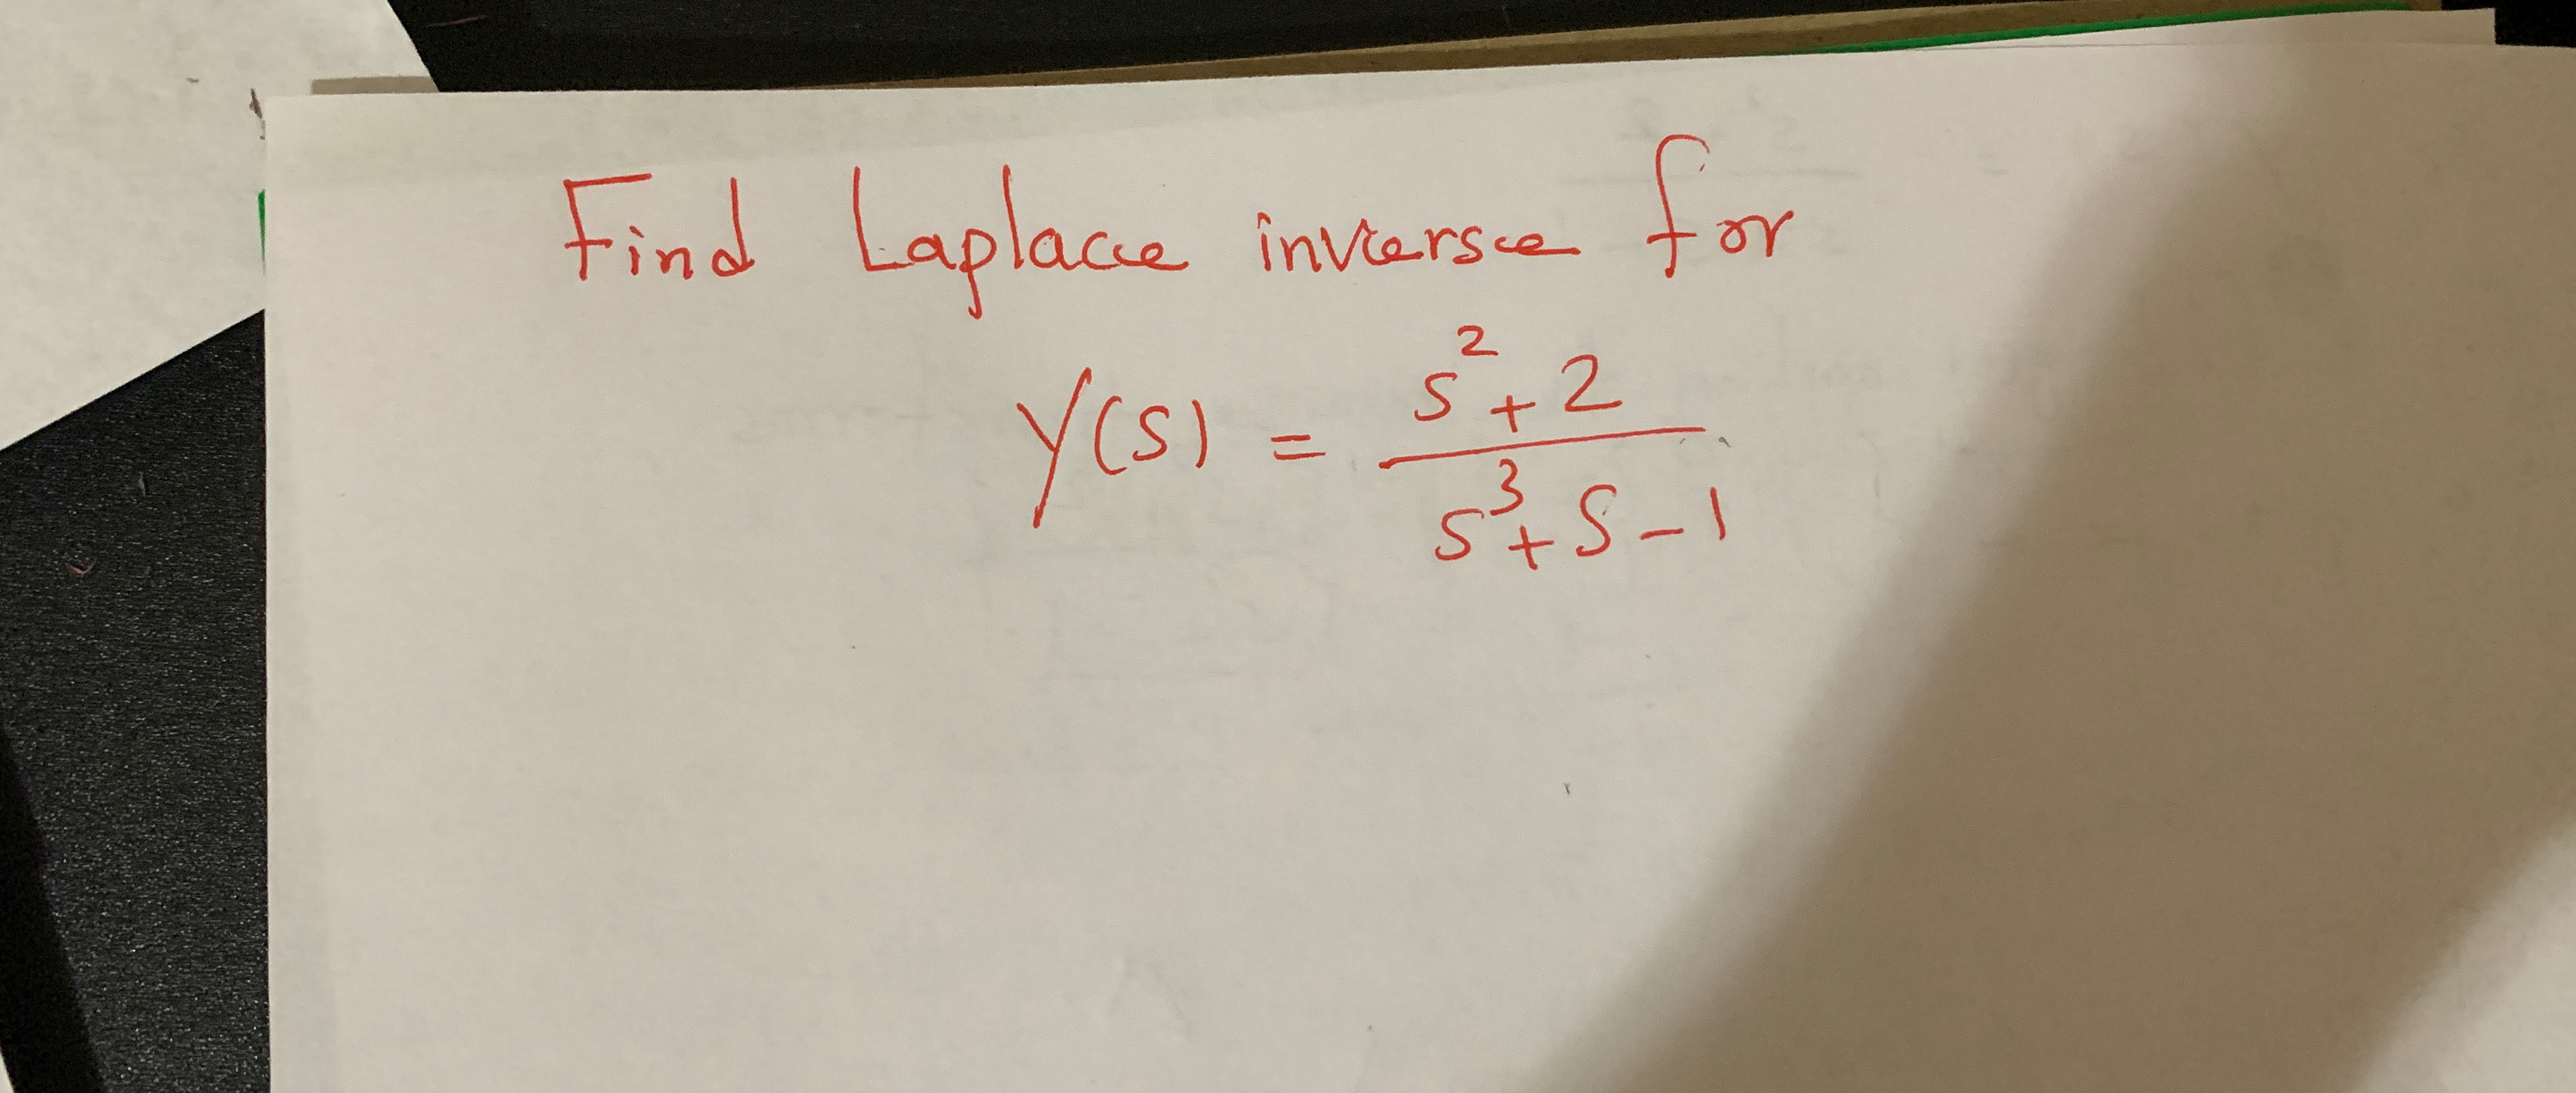 Find Laplace inverse for
Y(s) = s² + 2 / s³ + s - 1